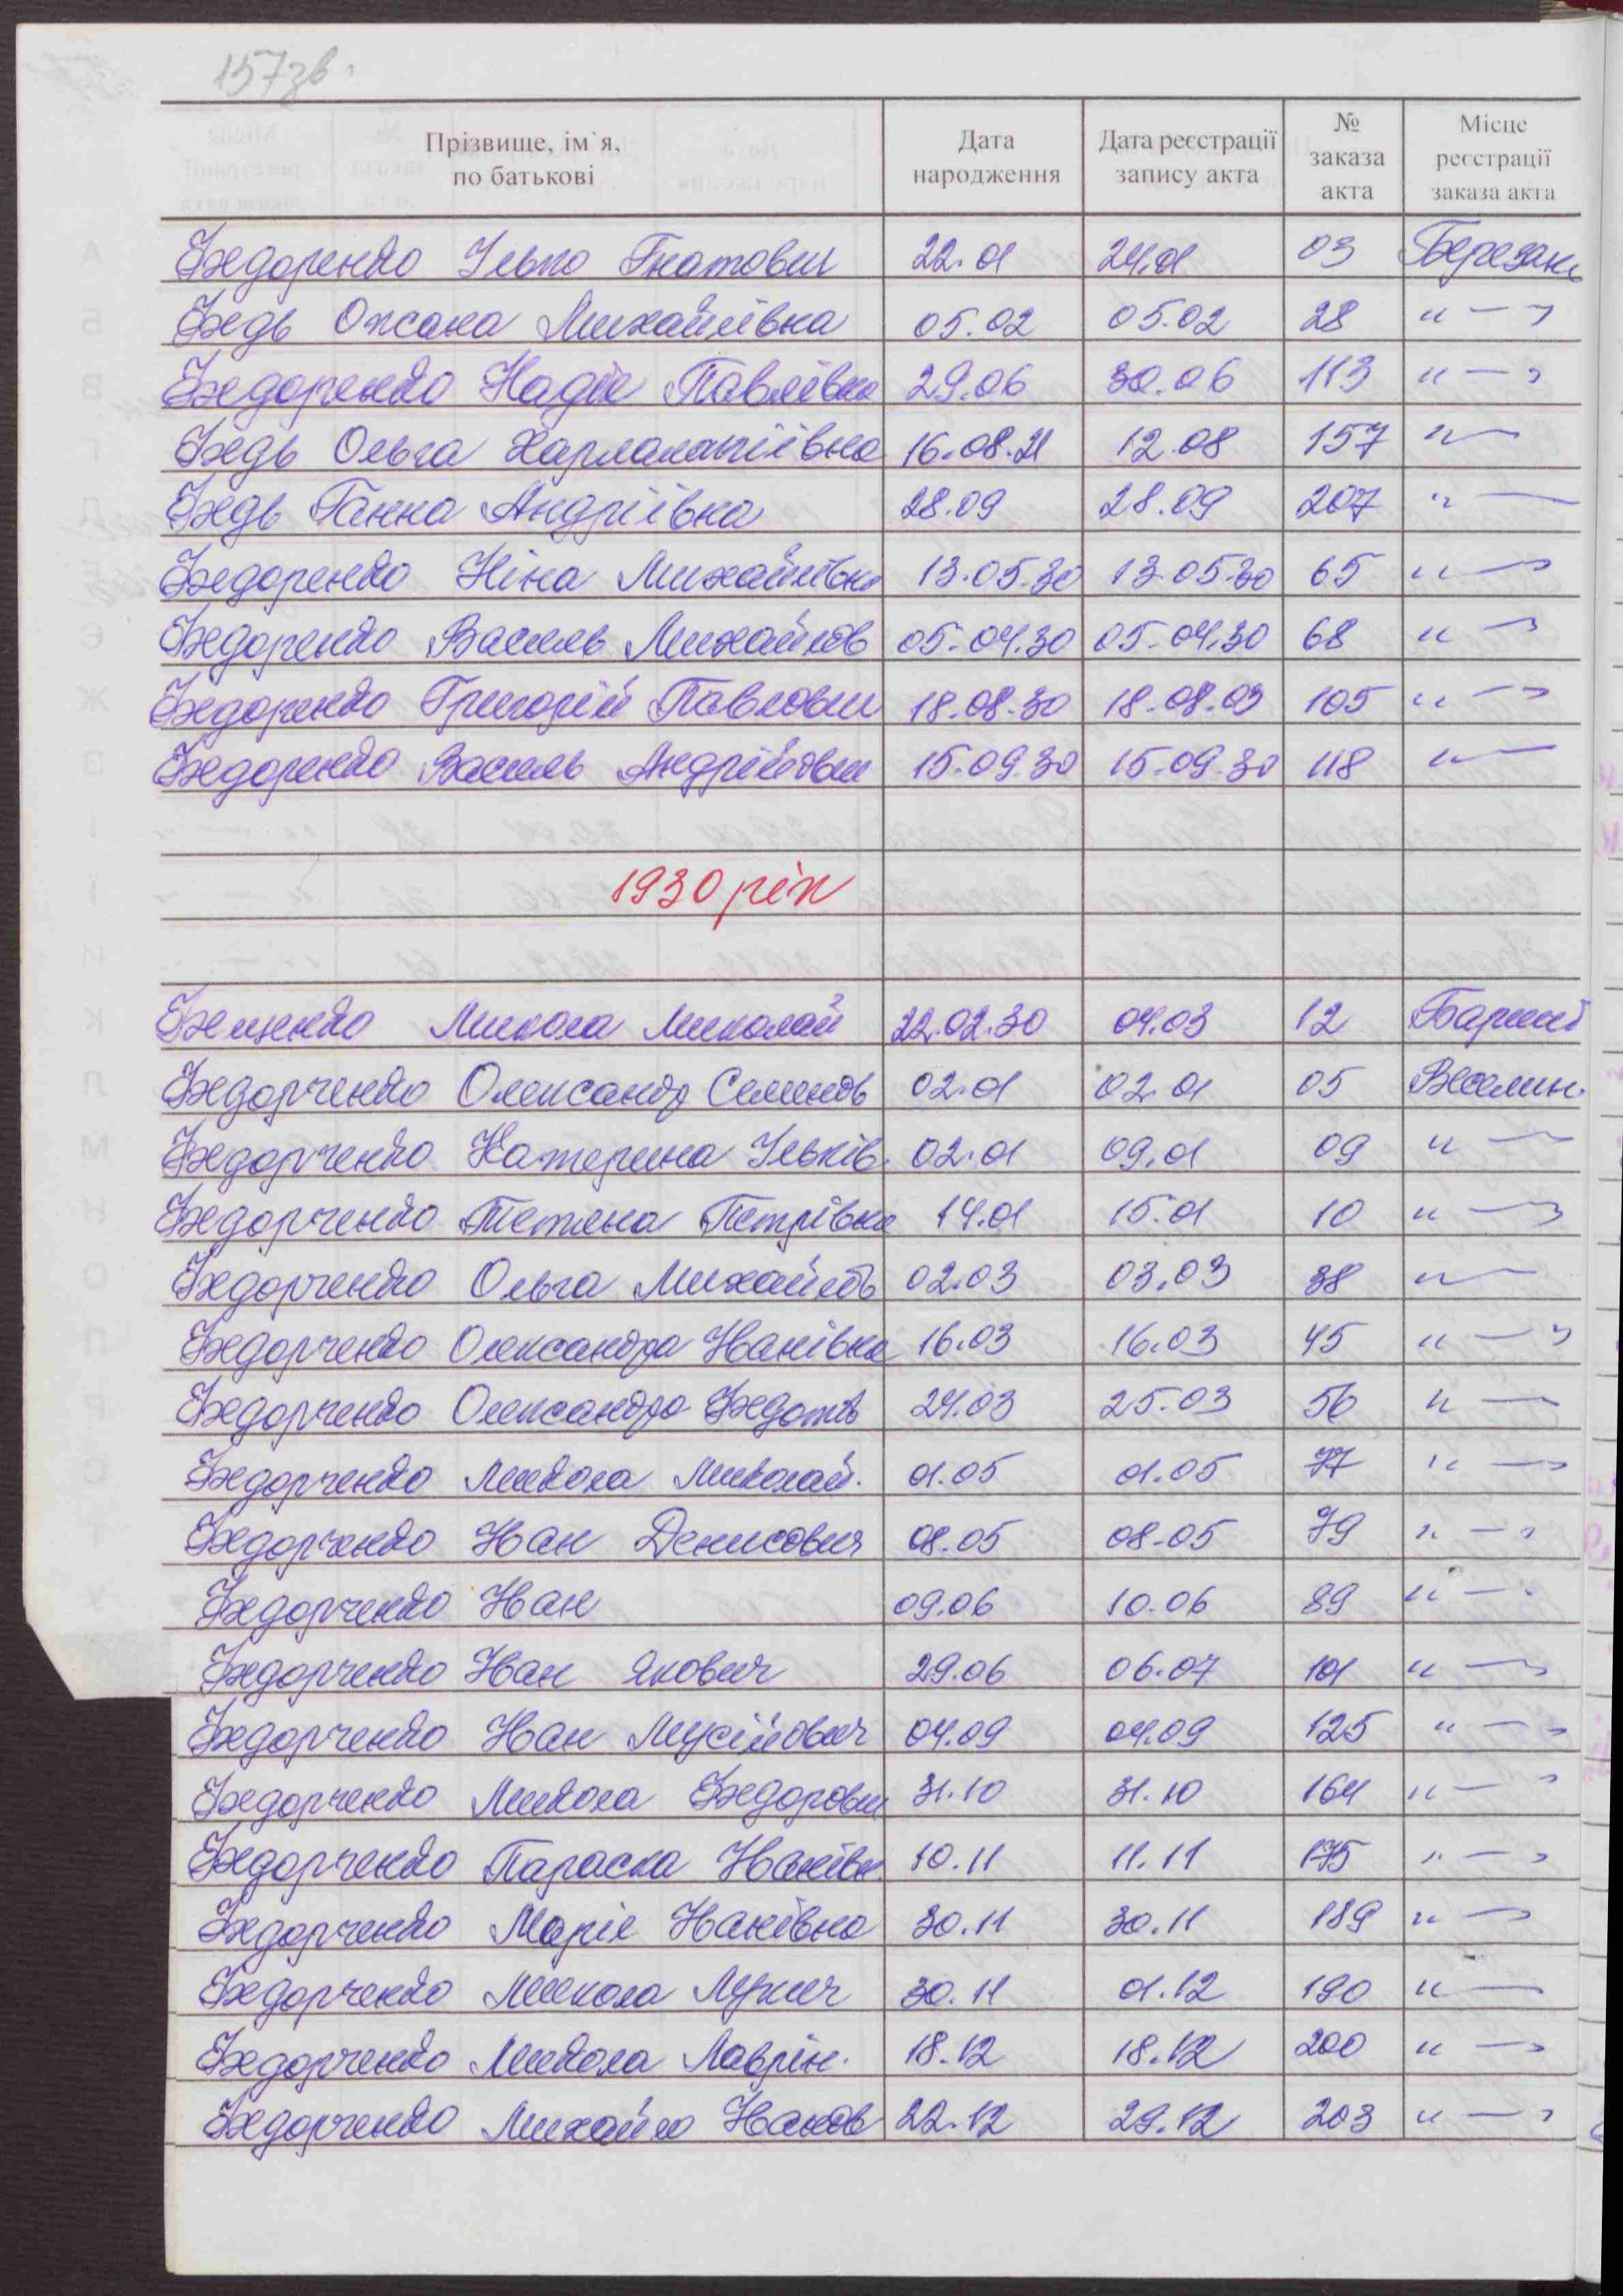 157зв.
Прізвище, ім`я, по батькові Дата народження Дата реєстрації запису акта № заказа акта Місце реєстрації заказа акта
Федоренко Ілько Гнатович 22.01 24.01 03 Березань
Федь Оксана Михайлівна 05.02 05.02 28 " — "
Федоренко Надія Павлівна 29.06 30.06 113 " — "
Федь Ольга Харлампіївна 16.08.21 12.08 157 " —
Федь Ганна Андріївна 28.09 28.09 207 " —
Федоренко Ніна Михайлівна 13.05.30 13.05.30 65 " — "
Федоренко Василь Михайлов 05.04.30 05.04.30 68 " — "
Федоренко Григорій Павлович 18.08.30 18.08.03 105 " — "
Федоренко Василь Андрійович 15.09.30 15.09.30 118 " —
1930 рік
Фещенко Микола Миколай 22.02.30 04.03 12
Федорченко Олександр Семенов 02.01 02.01 05 Веселин.
Федорченко Катерина Ільків. 02.01 09.01 09 " —
Федорченко Тетяна Петрівна 14.01 15.01 10 " — "
Федорченко Ольга Михайлів 02.03 03.03 38 " —
Федорченко Олександра Іванівна 16.03 16.03 45 " — "
Федорченко Олександра Федотів 24.03 25.03 56 " —
Федорченко Микола Миколай. 01.05 01.05 77 " — "
Федорченко Іван Денисович 08.05 08.05 79 " — "
Федорченко Іван 09.06 10.06 89 " — "
Федорченко Іван Якович 29.06 06.07 101 " — "
Федорченко Іван Мусійович 04.09 04.09 125 " — "
Федорченко Микола Федорович 31.10 31.10 164 " — "
Федорченко Параска Іванівн. 10.11 11.11 175 " — "
Федорченко Марія Іванівна 30.11 30.11 189 " — "
Федорченко Микола Лукич 30.11 01.12 190 " —
Федорченко Микола Лаврін. 18.12 18.12 200 " — "
Федорченко Михайло Іванов 22.12 29.12 203 " — "